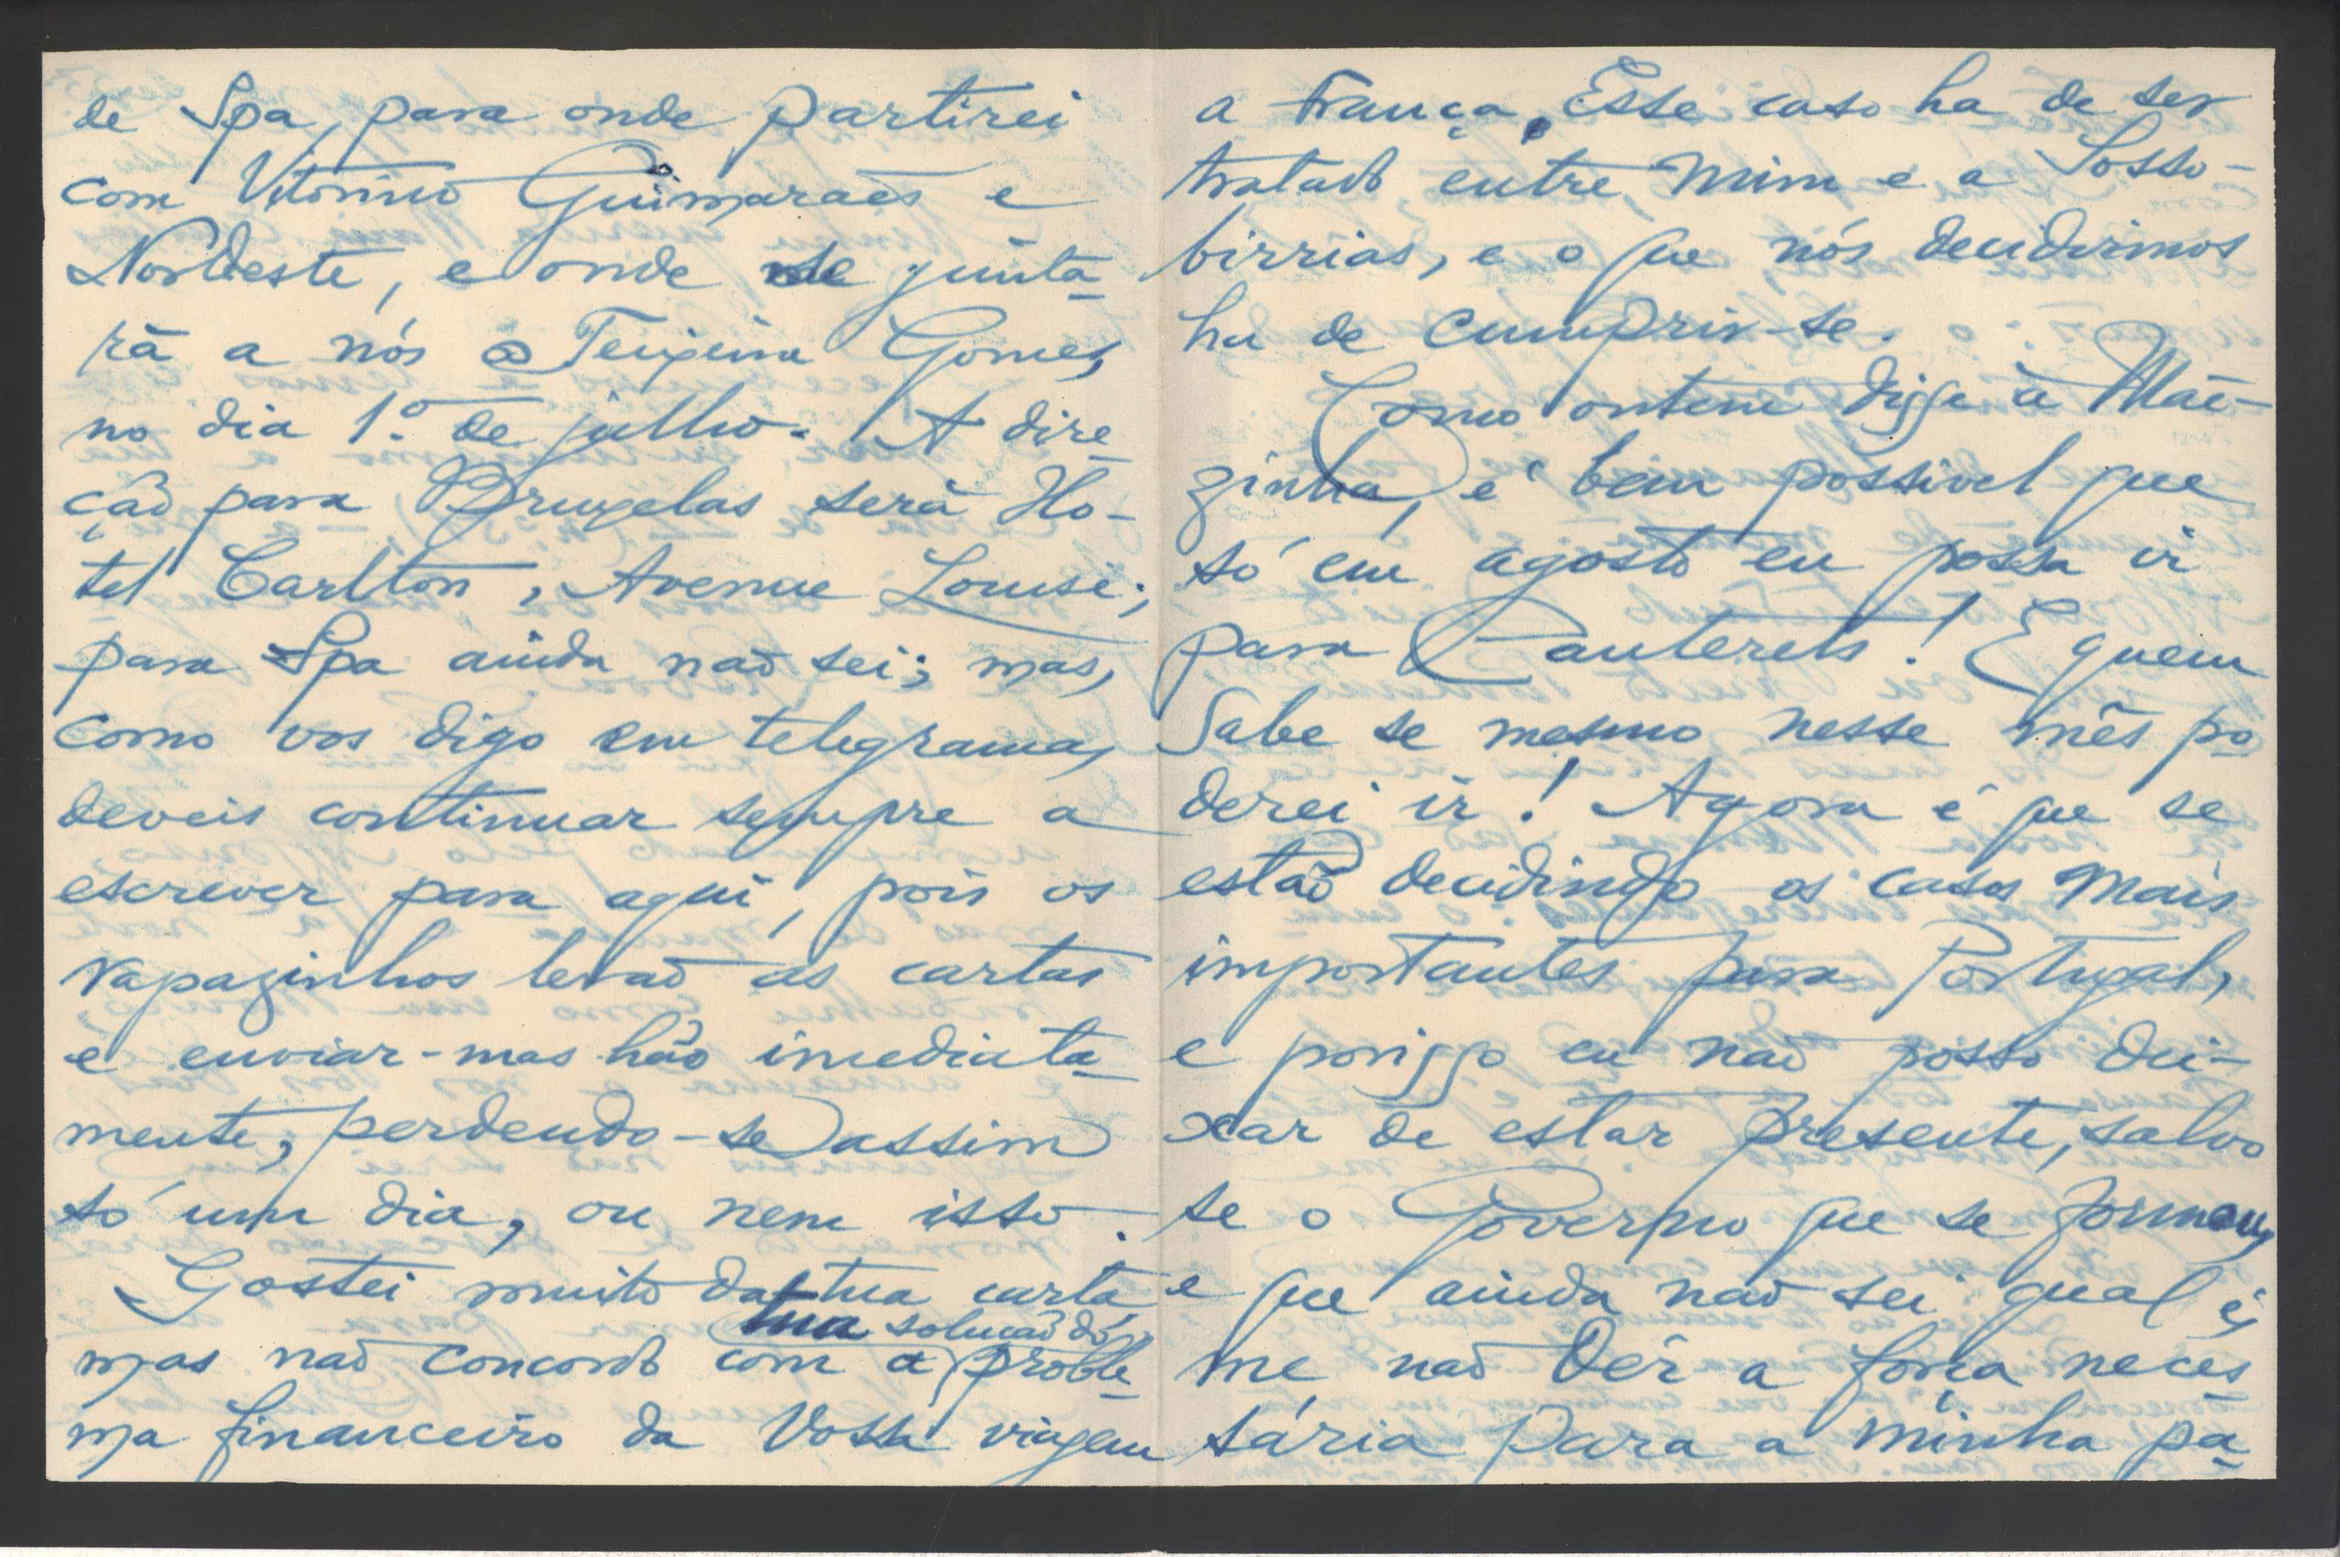 de Spa, para onde partirei
com Vitorino Guimarães e
Nordeste, e onde se junta-
rá a nós o Teixeira Gomes,
no dia 1º. de julho. A dire-
ção para Bruxelas será Ho-
tel Carlton, Avenue Louise;
para Spa ainda não sei; mas,
como vos digo em telegrama,
deveis continuar sempre a
escrever para aqui, pois os
rapazinhos levão as cartas
e enviar-mas hão imediata-
mente, perdendo-se assim
só um dia, ou nem isso.
Gostei muito da tua carta
mas não concordo com a tua solução do proble-
ma financeiro da vossa viagem
a França. Esse caso ha de ser
tratado entre mim e a Sosso-
birrias, e o que nós decidirmos
ha de cumprir-se.
Como ontem disse à Mãe-
zinha, é bem possivel que
só em agosto eu possa ir
para Cauterets! E quem
sabe se mesmo nesse mês po-
derei ir! Agora é que se
estão decidindo os casos mais
importantes para Portugal,
e porisso eu não posso dei-
xar de estar presente, salvo
se o Governo que se formou,
e que ainda não sei qual é,
me não dér a força neces-
sária para a minha pa-